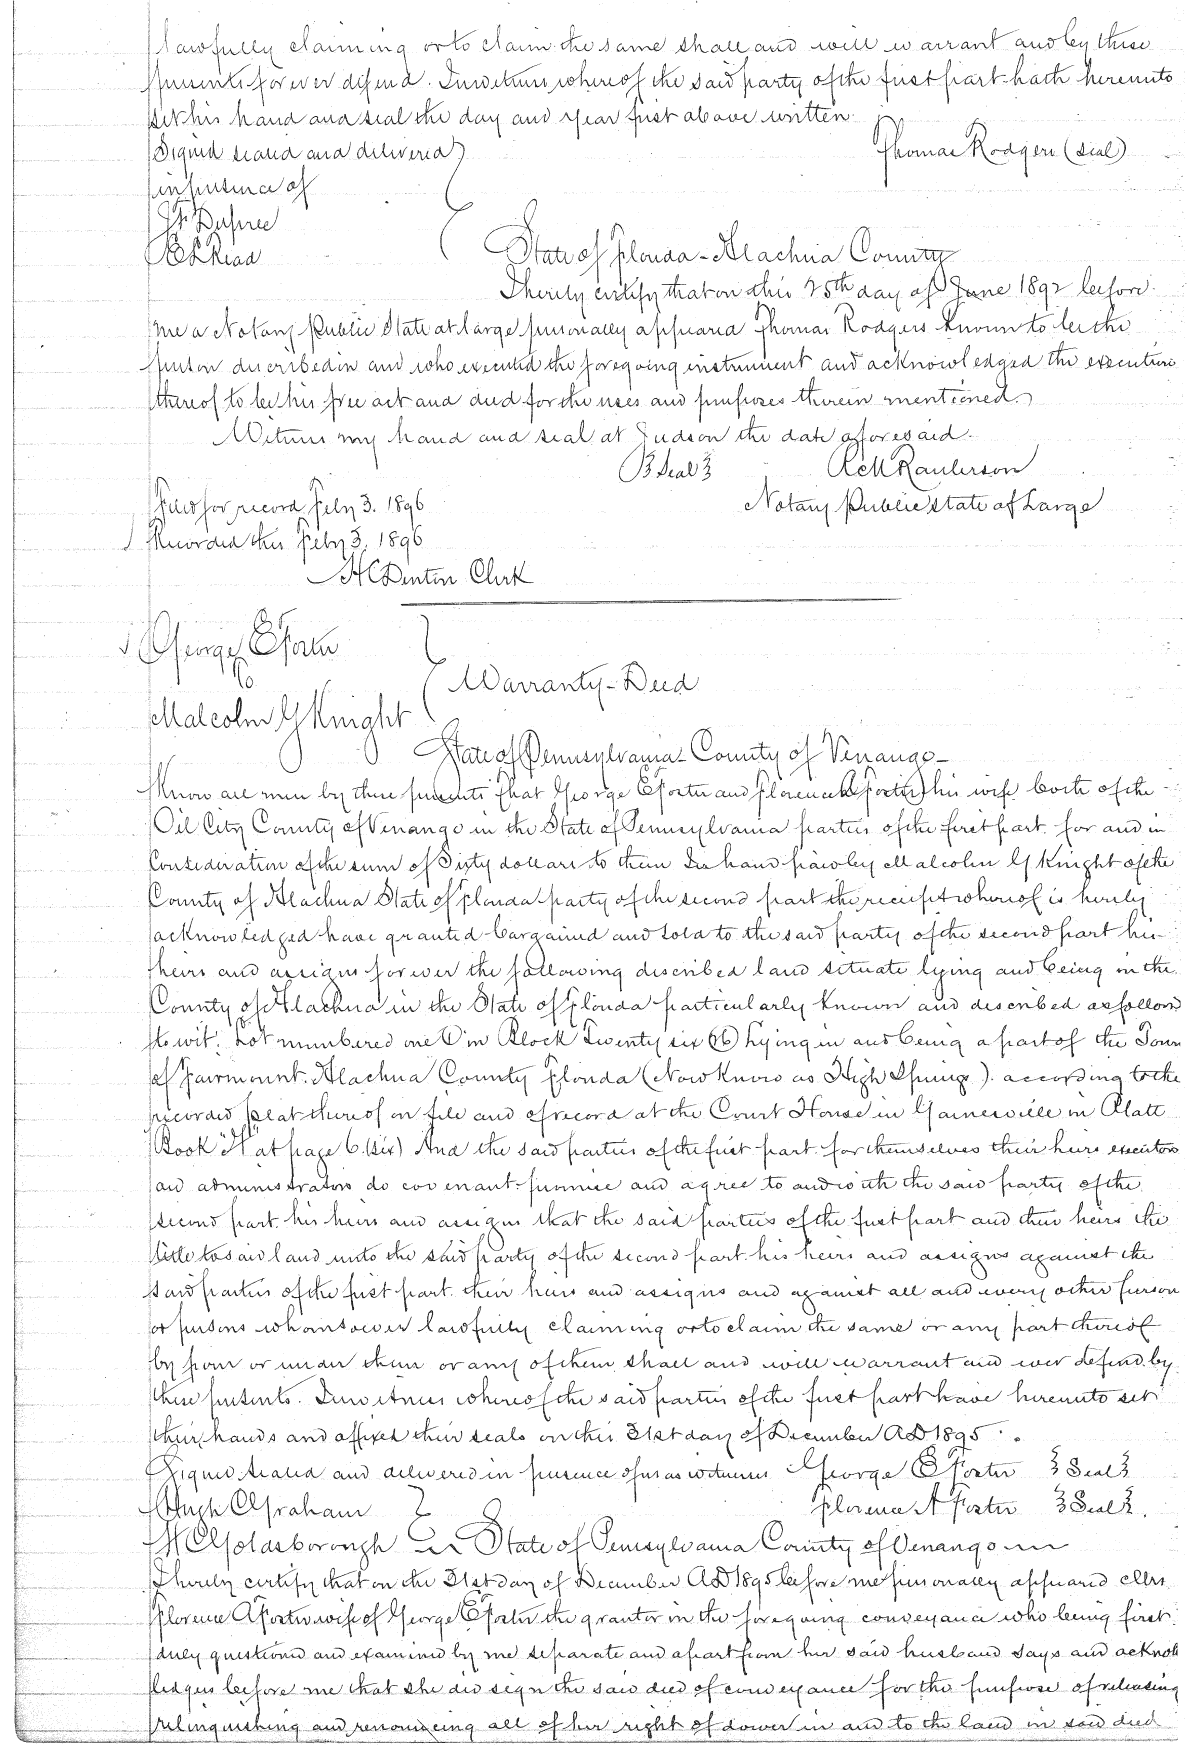 lawfully claiming or to claim the same shall and will warrant and by these
presents forever defend. In witness whereof the said party of the first part hath hereunto
set his hand and seal the day and year first above written
Signed sealed and delivered
Thomas Rodgers (seal)
in presence of
Dupree
Read
State of Florida - Alachua County
I hereby certify that on this 25th day of June 1892 before
me a Notary Public State at large personally appeared Thomas Rodgers known to be the
person described in and who executed the foregoing instrument and acknowledged the execution
thereof to be his free act and deed for the uses and purposes therein mentioned.
Witness my hand and seal at Judson the date aforesaid.
Seal
Raulerson
Filed for record Feby 3. 1896
Notary Public State at Large
Recorded this Feby 3, 1896
H C Denton Clerk
George E Foster
to
Warranty - Deed
Malcolm G Knight
State of Pennsylvania - County of Venango -
Know are men by these presents That George E Foster and Florence A Foster his wife both of the
Oil City County of Venango in the State of Pennsylvania parties of the first part for and in
Consideration of the sum of Sixty dollars to them in hand paid by Malcolm G Knight of the
County of Alachua State of Florida party of the second part the receipt whereof is hereby
acknowledged have granted bargained and sold to the said party of the second part his
heirs and assigns forever the following described land situate lying and being in the
County of Alachua in the State of Florida particularly known and described as follows
to wit: Lot numbered one (1) in Block Twenty six (26) Lying in and being a part of the Town
of Fairmount. Alachua County Florida (Now Know as High Springs). according to the
recorded plat thereof on file and of record at the Court House in Gainesville in Platt
Book "H" at page 6 (six) And the said parties of the first part for themselves their heirs executors
and administrators do covenant promise and agree to and with the said party of the
second part his heirs and assigns that the said parties of the first part and their heirs the
title to said land unto the said party of the second part his heirs and assigns against the
said parties of the first part their heirs and assigns and against all and every other person
or persons whomsoever lawfully claiming or to claim the same or any part thereof
by from or under them or any of them shall and will warrant and ever defend by
these presents. In witness whereof the said parties of the first part have hereunto set
their hands and affixed their seals on this 31st day of December AD 1895.
Signed sealed and delivered in presence of us as witnesses George E Foster Seal
Hugh C Graham
Florence A Foster Seal.
Goldsborough State of Pennsylvania County of Venango
I hereby certify that on the 31st day of December AD 1895 before me personally appeared Mrs
Florence A Foster wife of George E Foster the grantor in the foregoing conveyance who being first
duly questioned and examined by me separate and apart from her said husband says and acknow
ledges before me that she did sign the said deed of conveyance for the purpose of releasing
relinquishing and renouncing all of her right of dower in and to the land in said deed